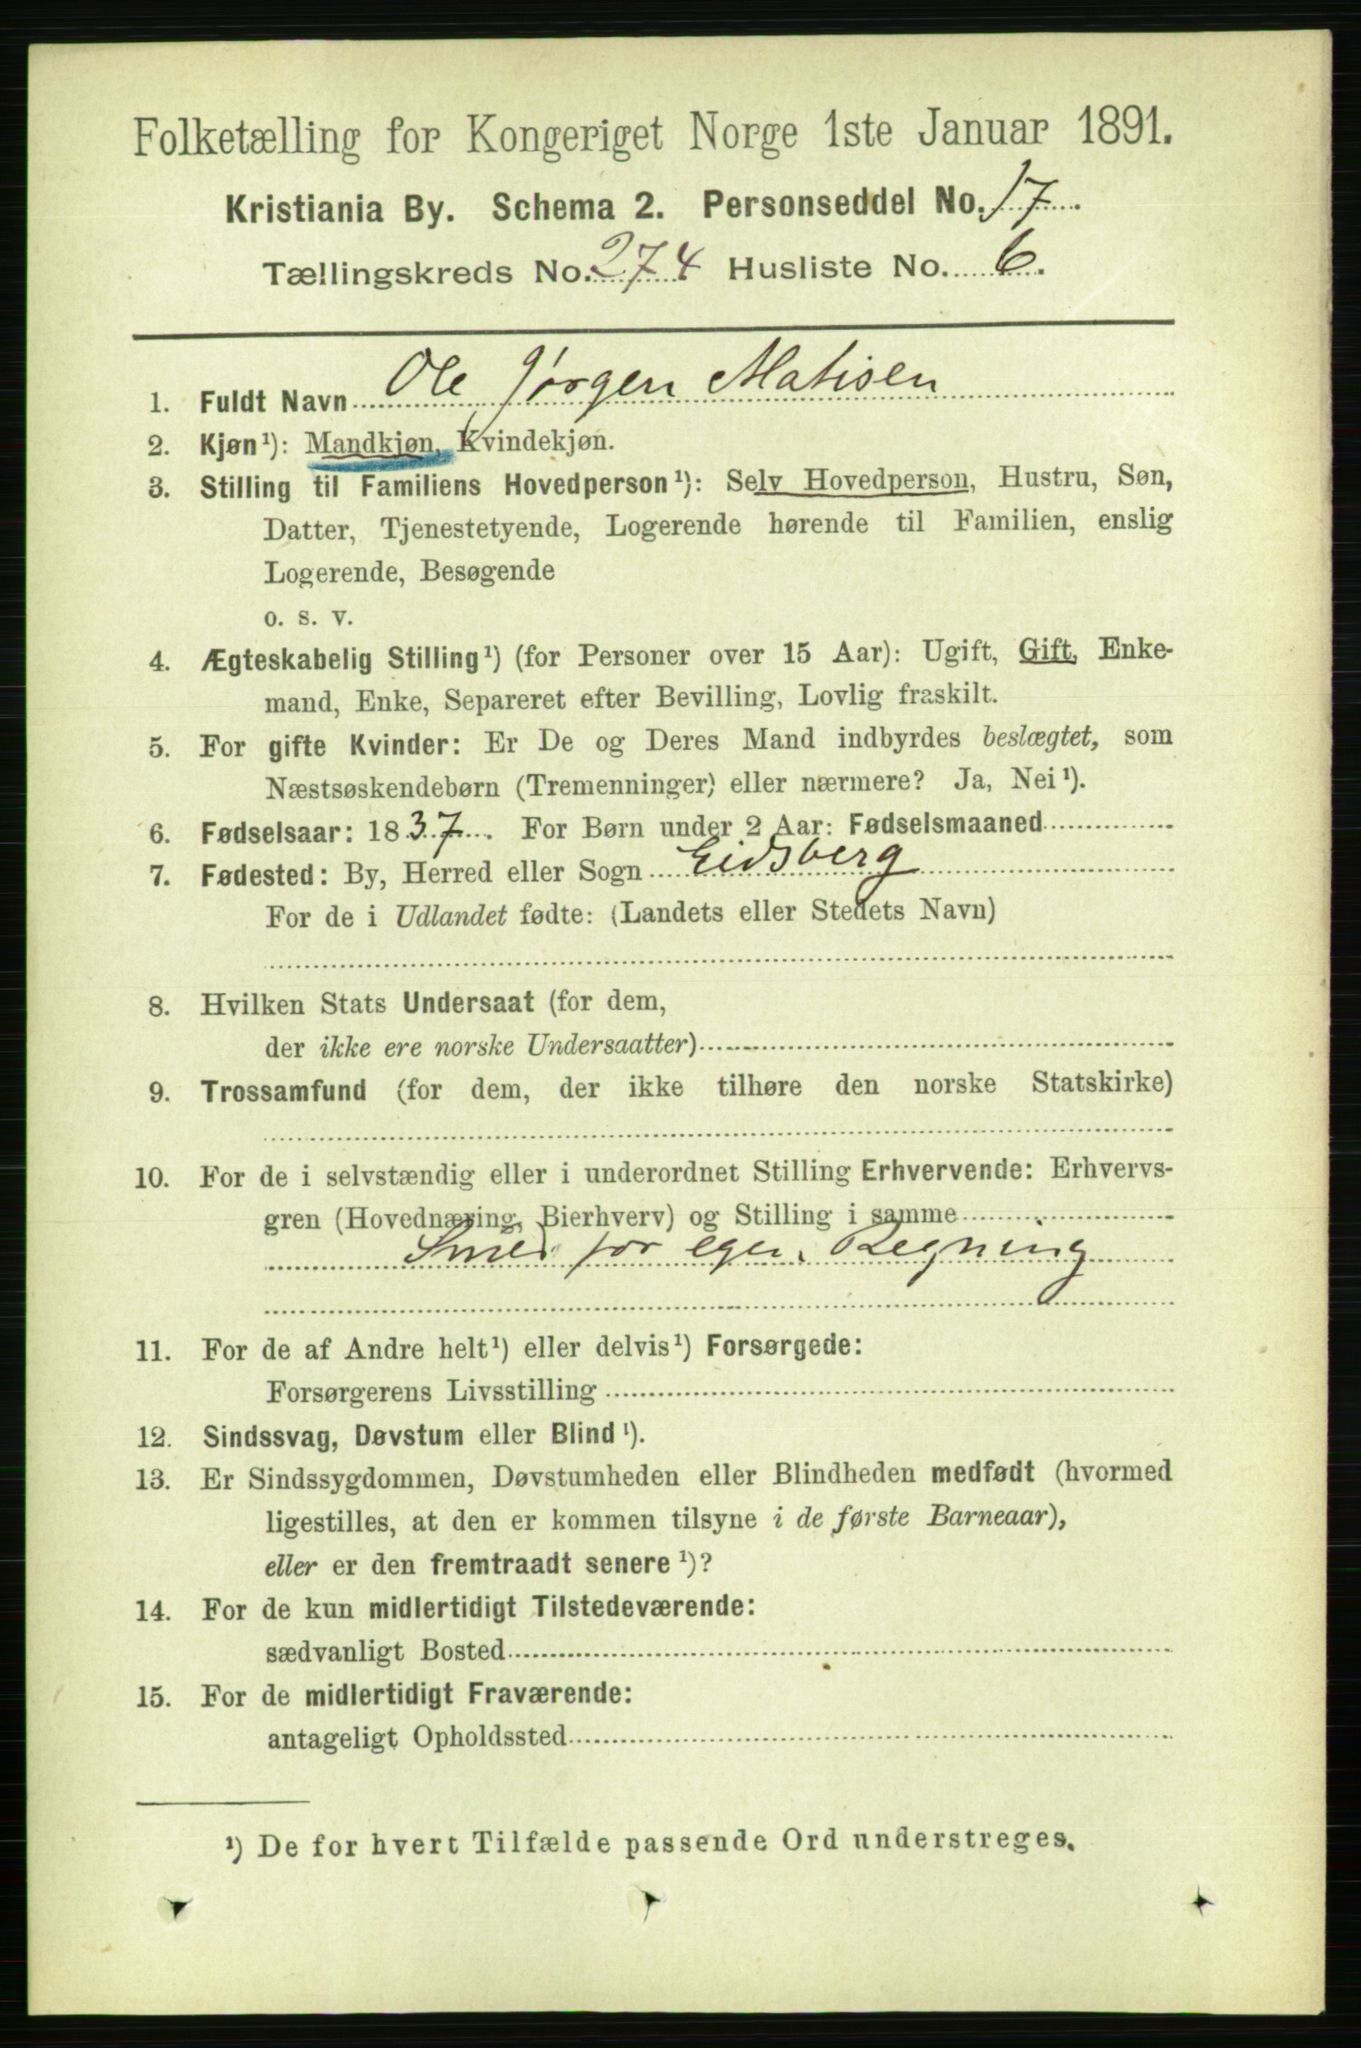 Folketælling for Kongeriget Norge 1ste Januar 1891.
Kristiania By. Schema 2. Personseddel No. 17.
Tællingskreds No. 274 Husliste No. 6.
1. Fuldt Navn Ole Jørgen Matisen
2. Kjøn¹): Mandkjøn, Kvindekjøn.
3. Stilling til Familiens Hovedperson¹): Selv Hovedperson, Hustru, Søn,
Datter, Tjenestetyende, Logerende hørende til Familien, enslig
Logerende, Besøgende
o. s. v.
4. Ægteskabelig Stilling¹) (for Personer over 15 Aar): Ugift, Gift, Enke-
mand, Enke, Separeret efter Bevilling, Lovlig fraskilt.
5. For gifte Kvinder: Er De og Deres Mand indbyrdes beslægtet, som
Næstsøskendebørn (Tremenninger) eller nærmere? Ja, Nei¹).
6. Fødselsaar: 1837. For Børn under 2 Aar: Fødselsmaaned
7. Fødested: By, Herred eller Sogn Eidsberg
For de i Udlandet fødte: (Landets eller Stedets Navn)
8. Hvilken Stats Undersaat (for dem,
der ikke ere norske Undersaatter)
9. Trossamfund (for dem, der ikke tilhøre den norske Statskirke)
10. For de i selvstændig eller i underordnet Stilling Erhvervende: Erhvervs-
gren (Hovednæring, Bierhverv) og Stilling i samme
Smed for egen Regning
11. For de af Andre helt¹) eller delvis¹) Forsørgede:
Forsørgerens Livsstilling
12. Sindssvag, Døvstum eller Blind¹).
13. Er Sindssygdommen, Døvstumheden eller Blindheden medfødt (hvormed
ligestilles, at den er kommen tilsyne i de første Barneaar),
eller er den fremtraadt senere¹)?
14. For de kun midlertidigt Tilstedeværende:
sædvanligt Bosted
15. For de midlertidigt Fraværende:
antageligt Opholdssted
¹) De for hvert Tilfælde passende Ord understreges.